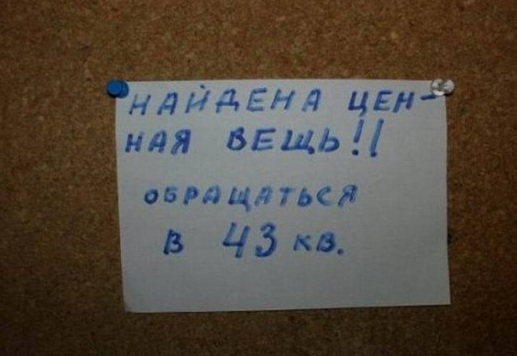 НАЙДЕНА ЦЕН-
НАЯ ВЕЩЬ!!
ОБРАЩАТЬСЯ
В 43 КВ.